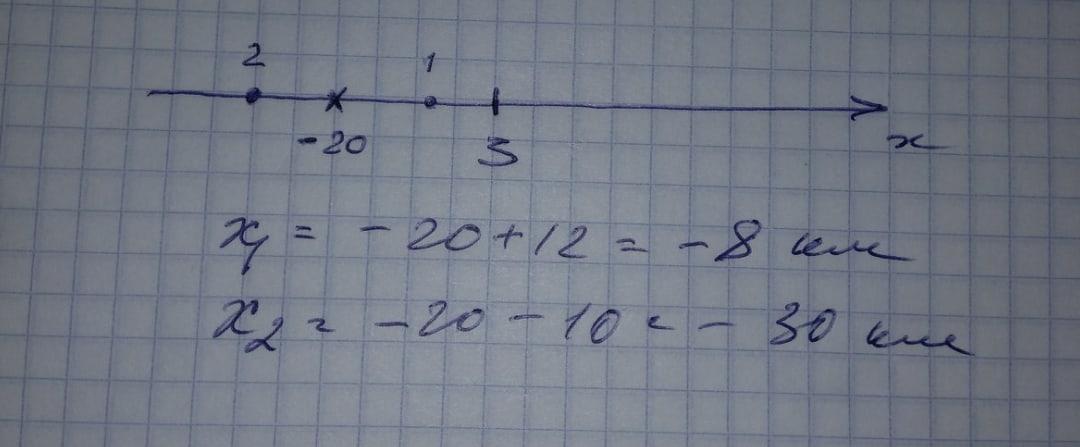 2 1
-20 3
x
x₁ = -20+12 = -8 км
x₂ = -20 - 10 = - 30 км